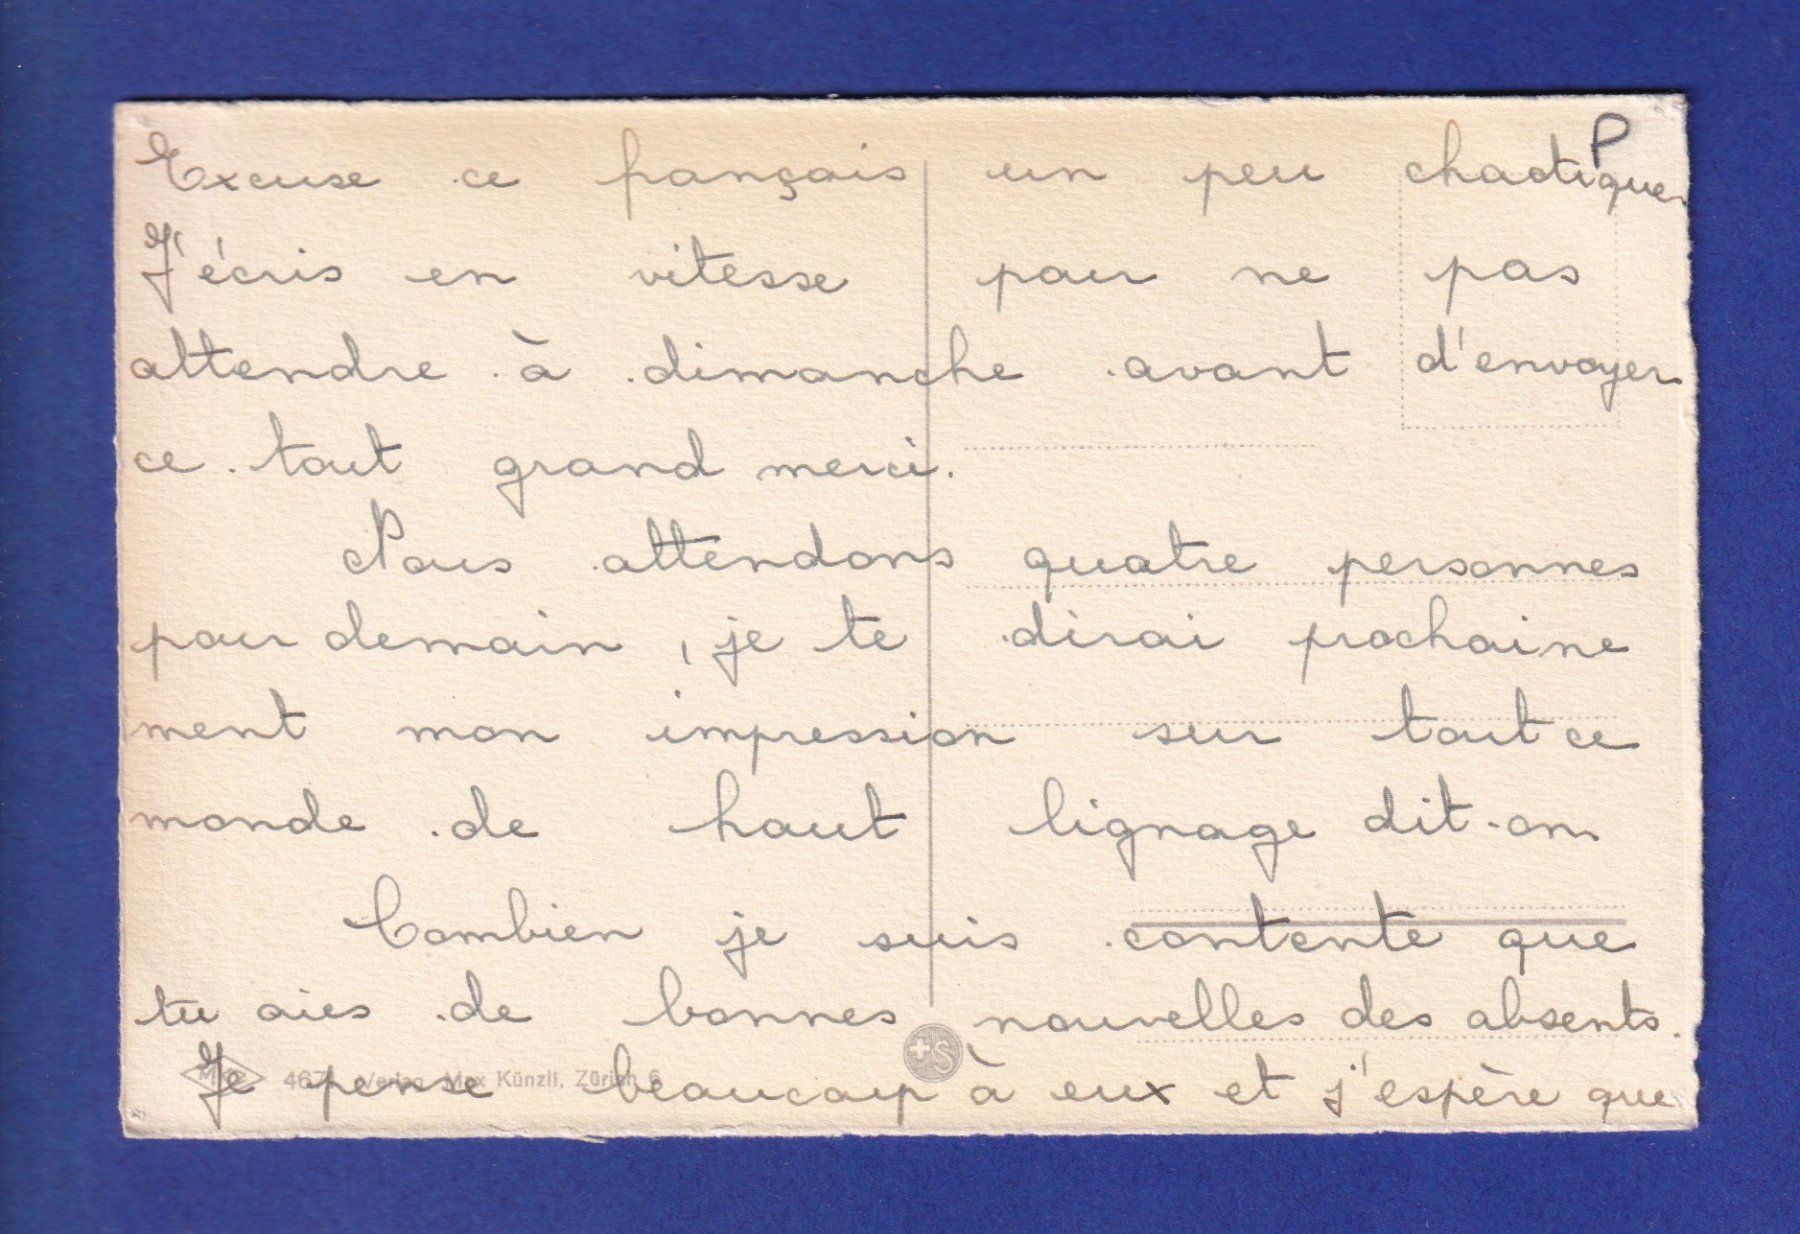 P
Excuse ce français un peu chaotique
J'écris en vitesse pour ne pas
attendre à dimanche avant d'envoyer
ce tout grand merci.
Nous attendons quatre personnes
pour demain, je te dirai prochaine
ment mon impression sur tout ce
monde de haut lignage dit-on
Combien je suis contente que
tu aies de bonnes nouvelles des absents.
Je pense beaucoup à eux et j'espère que
+S
Verlag Max Künzli, Zürich 6